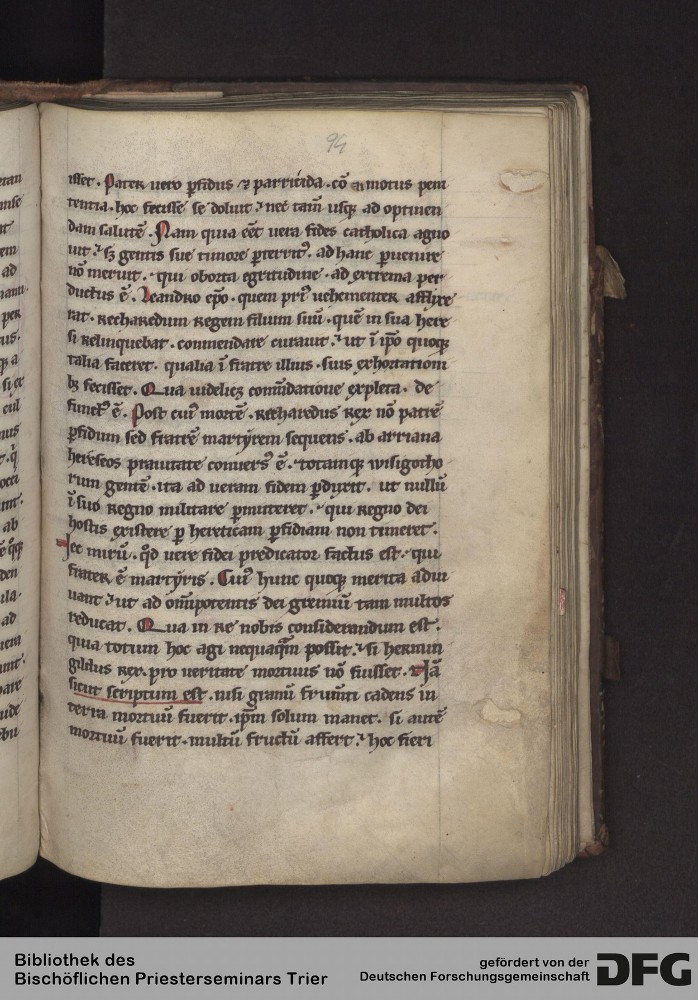 94
isset. Pater uero ꝑfidus ⁊ parricida. cō motus peni
tentia. hoc fecisse se doluit. nec tam̄ usqꝫ ad optinen
dam salutē. Nam quia eēt uera fides catholica agno
uit. sꝫ gentis sue timore ꝑterrit᷒. ad hanc ꝑuenire
nō meruit. qui oborta egritudine. ad extrema per
ductus ē. Leandro ep̄o. quem pri᷒ uehementer afflixe
rat. Recharedum Regem filium suū. quē in sua here
si relinquebat. commendare curauit. ut ī ip̄o quoqꝫ
talia faceret. qualia ī fratre illius. suis exhortationi
bꝫ fecisset. Qua uidelicꝫ com̄datione expleta. de
funct᷒ ē. Post cui᷒ mortē. Recharedus Rex nō patrē
ꝑfidum sed fratrē martyrem sequens. ab arriana
hereseos prauitate conuers᷒ ē. totamqꝫ wisigotho
rum gentē. ita ad ueram fidem ꝑduxit. ut nullū
ī suo Regno militare ꝑmitteret. qui Regno dei
hostis existere ꝑ hereticam ꝑfidiam non timeret.
Nec mirū. qd̄ uere fidei predicator factus est. qui
frater ē martyris. Cui᷒ hunc quoqꝫ merita adiu
uant. ut ad om̄ipotentis dei gremiū tam multos
reducat. Qua in Re nobis considerandum est.
quia totum hoc agi nequaqͣm possit. si hermin
gildus Rex. pro ueritate mortuus nō fuisset. Nā
sicut scriptum est. nisi granū frum̄ti cadens in
terra mortuū fuerit. ip̄m solum manet. si autē
mortuū fuerit. multū fructū affert. hoc fieri
Bibliothek des
Bischöflichen Priesterseminars Trier
gefördert von der
Deutschen Forschungsgemeinschaft
DFG